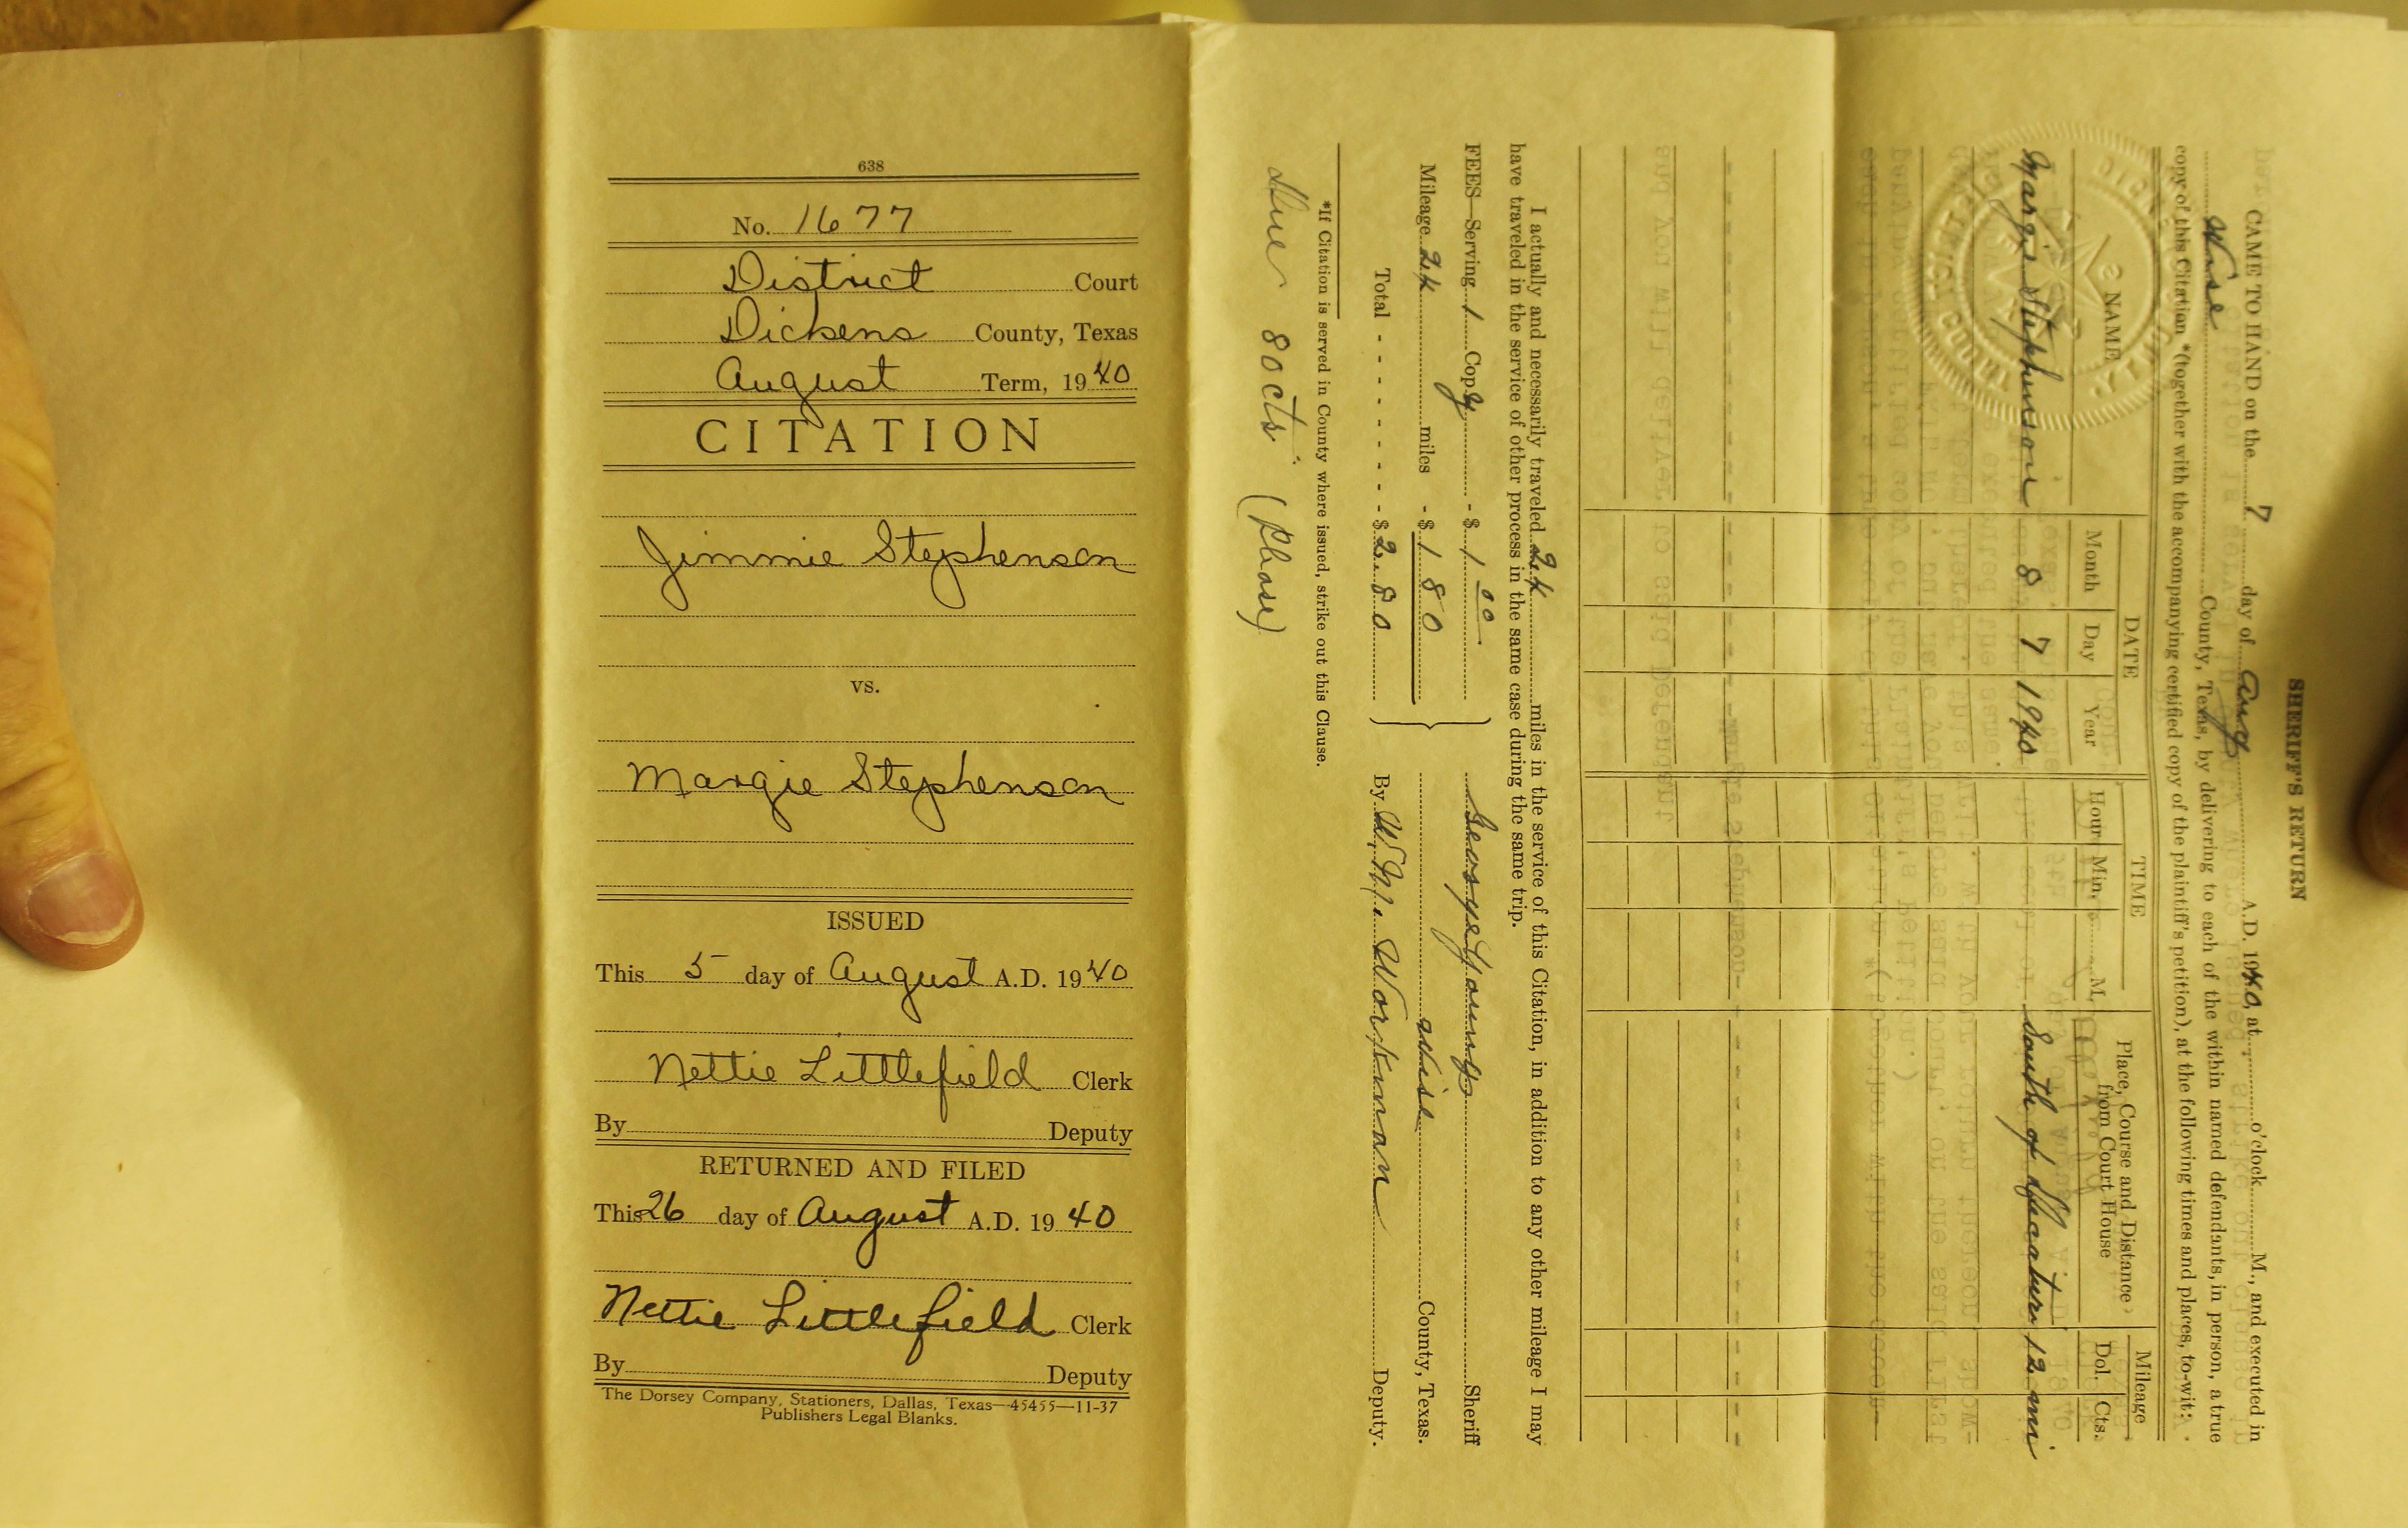 638
No. 1677
District Court
Dickens County, Texas
August Term, 1940
CITATION
Jimmie Stephenson
vs.
Margie Stephenson
ISSUED
This 5 day of August A.D. 1940
Nettie Littlefield Clerk
By Deputy
RETURNED AND FILED
This 26 day of August A.D. 1940
Nettie Littlefield Clerk
By Deputy
The Dorsey Company, Stationers, Dallas, Texas—45455—11-37
Publishers Legal Blanks.
SHERIFF'S RETURN
CAME TO HAND on the 7 day of Aug A.D. 1940, at o'clock M., and executed in
Wise County, Texas, by delivering to each of the within named defendants, in person, a true
copy of this Citation *(together with the accompanying certified copy of the plaintiff's petition), at the following times and places, to-wit:
NAME DATE TIME Place, Course and Distance from Court House Mileage
Month Day Year Hour Min. M. Dol. Cts.
Margie Stephenson 8 7 1940 South of Decatur 12 mi
I actually and necessarily traveled 24 miles in the service of this Citation, in addition to any other mileage I may
have traveled in the service of other process in the same case during the same trip.
FEES—Serving 1 Copy - $ 1 00 George Young Sheriff
Mileage 24 miles - $ 1 80 Wise County, Texas.
Total - - - - - - - - $ 2.80 By W.M. Workman Deputy.
*If Citation is served in County where issued, strike out this Clause.
Due 80cts. (Phone)